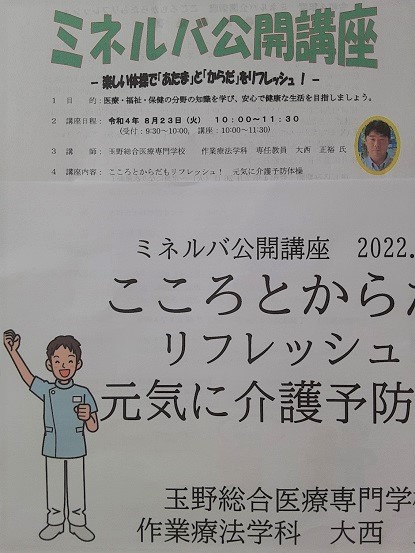 ミネルバ公開講座
－ 楽しい体操で「あたま」と「からだ」をリフレッシュ！ －
1 目 的：医療・福祉・保健の分野の知識を学び、安心で健康な生活を目指しましょう。
2 講座日程：令和4年 8月23日（火） 10：00～11：30
（受付：9:30～10:00，講座：10:00～11:30）
3 講 師：玉野総合医療専門学校 作業療法学科 専任教員 大西 正裕 氏
4 講座内容：こころとからだもリフレッシュ！ 元気に介護予防体操
ミネルバ公開講座 2022.
こころとから
リフレッシュ
元気に介護予防
玉野総合医療専門学校
作業療法学科 大西